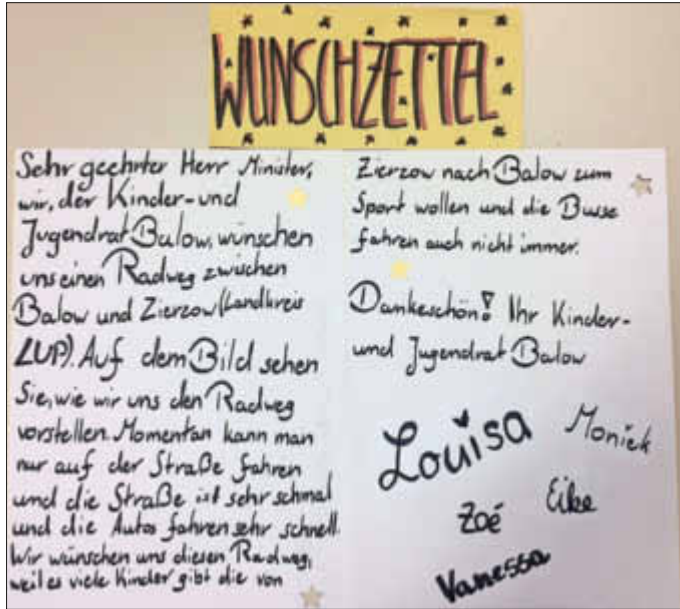 WUNSCHZETTEL
Sehr geehrter Herr Minister,
wir, der Kinder- und
Jugendrat Balow, wünschen
uns einen Radweg zwischen
Balow und Zierzow (Landkreis
LUP). Auf dem Bild sehen
Sie, wie wir uns den Radweg
vorstellen. Momentan kann man
nur auf der Straße fahren
und die Straße ist sehr schmal
und die Autos fahren sehr schnell.
Wir wünschen uns diesen Radweg,
weil es viele Kinder gibt die von
Zierzow nach Balow zum
Sport wollen und die Busse
fahren auch nicht immer.
Dankeschön! Ihr Kinder-
und Jugendrat Balow
Louisa
Moniek
Zoé
Eike
Vanessa